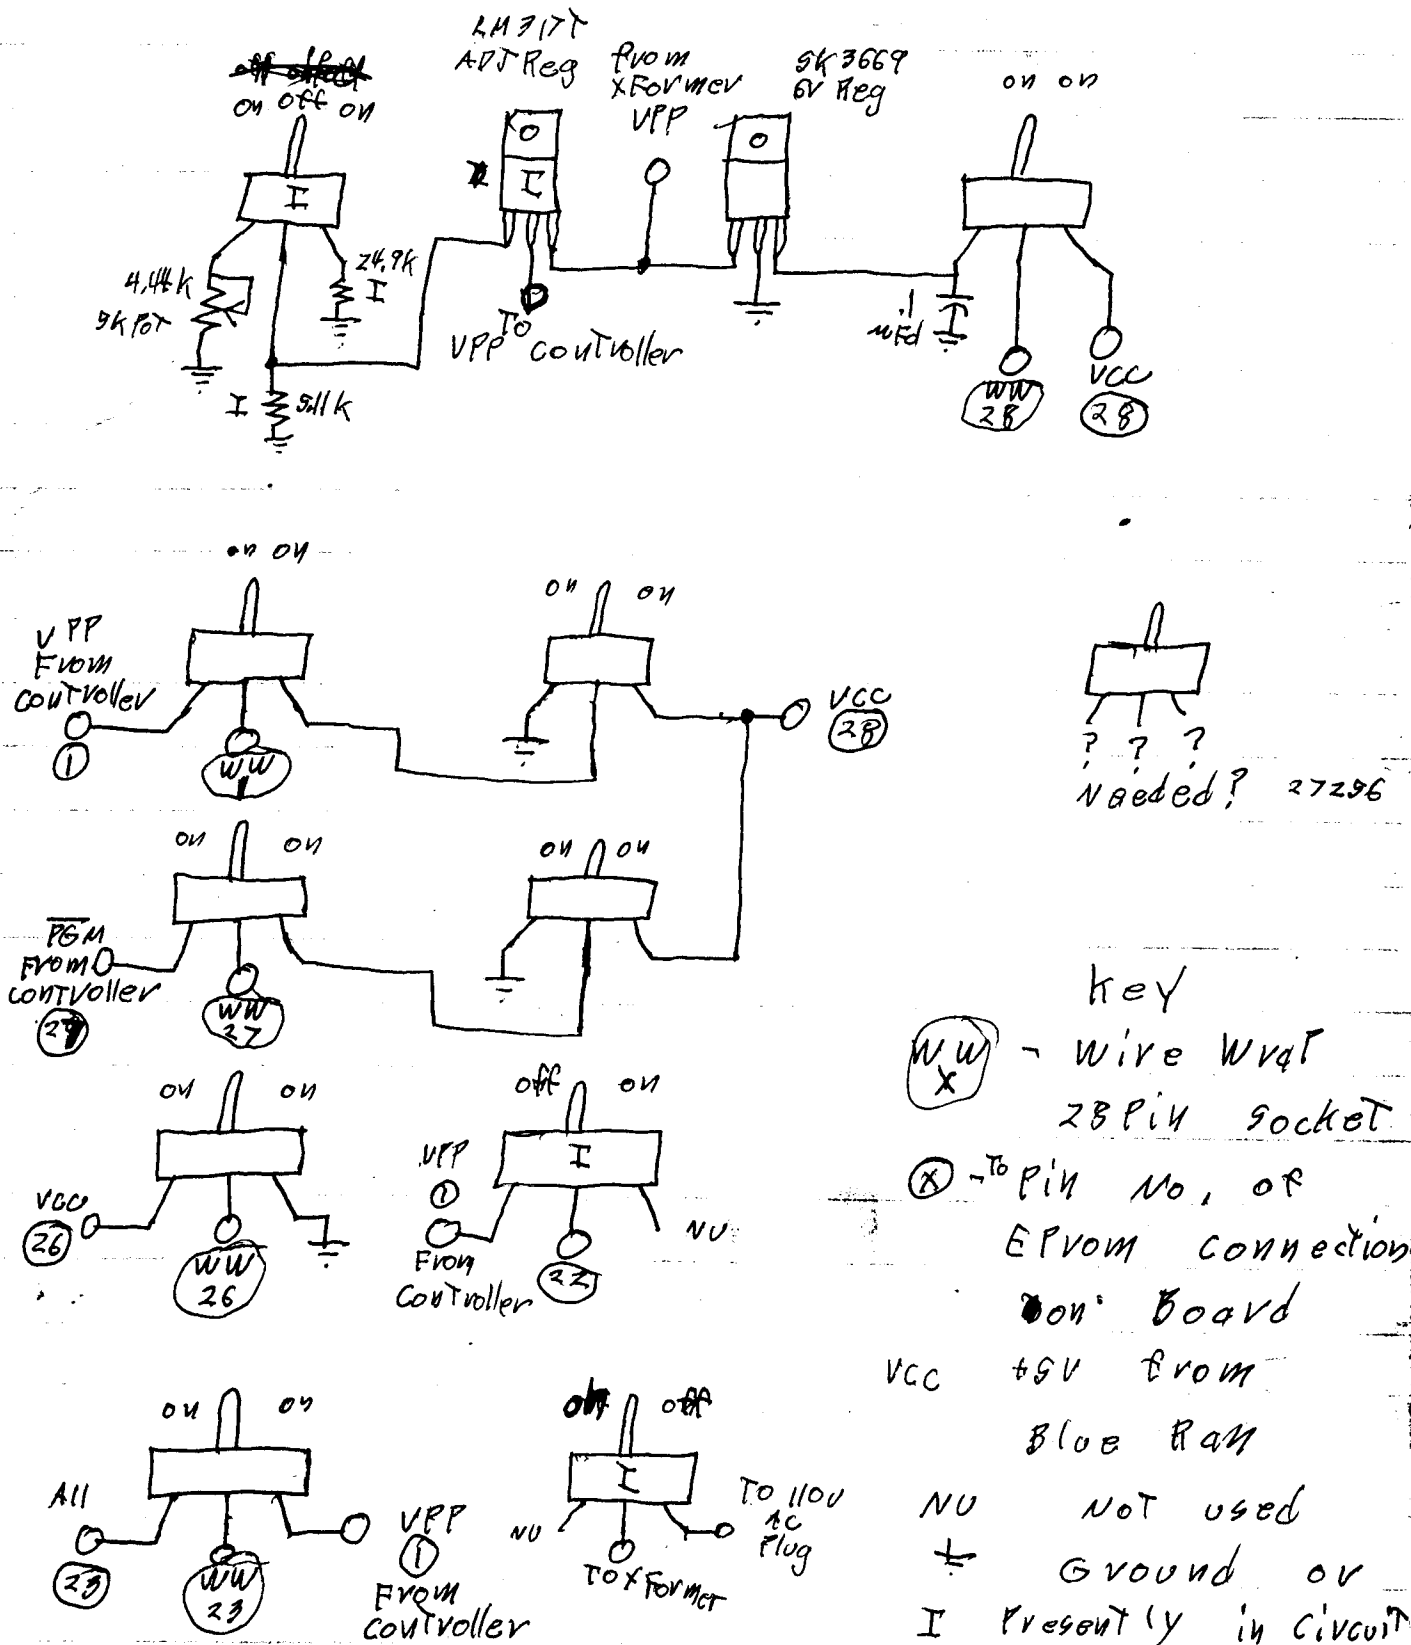 on off on
LM317T
ADJ Reg
from
xFormer
VPP
SK3669
6V Reg
on on
I
I
4.44k
5k Pot
24.9k
I
I
5.11k
To
VPP Controller
.1
mFd
WW
28
VCC
28
on on
VPP
From
Controller
1
WW
1
on on
VCC
28
? ? ?
Needed? 27256
on on
PGM
From
Controller
27
WW
27
on on
on on
VCC
26
WW
26
off on
I
VPP
1
From
Controller
22
NU
on on
All
23
WW
23
VPP
1
From
Controller
off
I
NU
To xFormer
To 110V
AC
Plug
Key
WW
X
- Wire Wrap
28 Pin Socket
X - To Pin No. of
EProm connection
on Board
VCC +5V from
Blue Ram
NU Not used
Ground or
I Presently in circuit